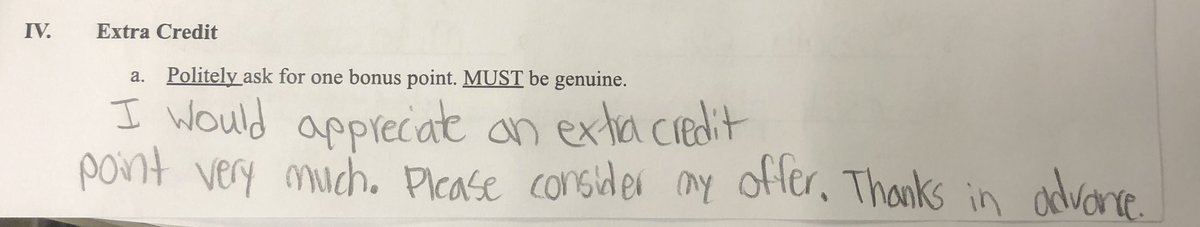 IV. Extra Credit
a. Politely ask for one bonus point. MUST be genuine.
I would appreciate an extra credit
point very much. Please consider my offer. Thanks in advance.